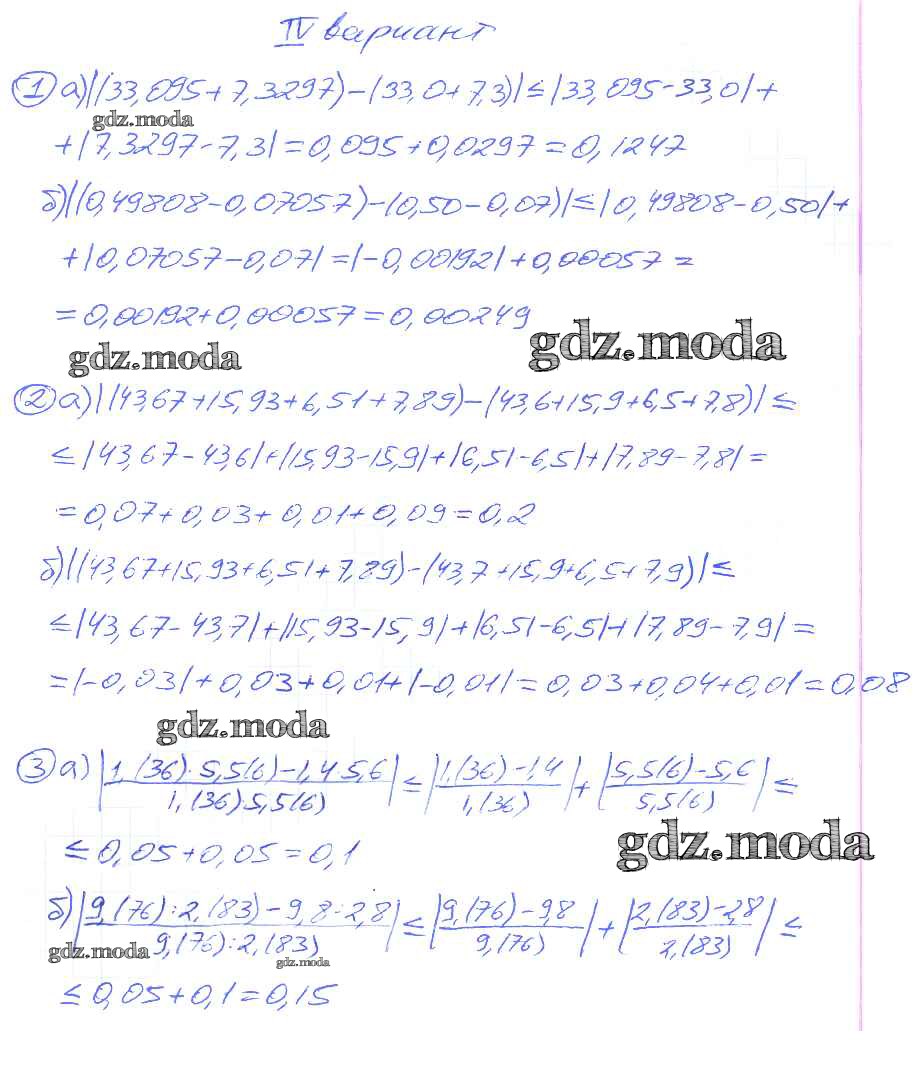 IV вариант
① а) |(33,095+7,3297)-(33,0+7,3)| ≤ |33,095-33,0| +
gdz.moda
+ |7,3297-7,3| = 0,095+0,0297 = 0,1247
б) |(0,49808-0,07057)-(0,50-0,07)| ≤ |0,49808-0,50| +
+ |0,07057-0,07| = |-0,00192| + 0,00057 =
= 0,00192+0,00057 = 0,00249
gdz.moda
gdz.moda
② а) |(43,67+15,93+6,51+7,89)-(43,6+15,9+6,5+7,8)| ≤
≤ |43,67-43,6|+|15,93-15,9|+|6,51-6,5|+|7,89-7,8| =
= 0,07+0,03+0,01+0,09 = 0,2
б) |(43,67+15,93+6,51+7,89)-(43,7+15,9+6,5+7,9)| ≤
≤ |43,67-43,7|+|15,93-15,9|+|6,51-6,5|+|7,89-7,9| =
= |-0,03|+0,03+0,01+|-0,01| = 0,03+0,04+0,01 = 0,08
gdz.moda
③ а) |(1,(36)·5,5(6)-1,4 5,6)/(1,(36) 5,5(6))| ≤ |(1,(36)-1,4)/(1,(36))| + |(5,5(6)-5,6)/(5,5(6))| ≤
≤ 0,05+0,05 = 0,1
gdz.moda
б) |(9,(76):2,(83)-9,8:2,8)/(9,(76):2,(83))| ≤ |(9,(76)-9,8)/(9,(76))| + |(2,(83)-2,8)/(2,(83))| ≤
gdz.moda
gdz.moda
≤ 0,05+0,1 = 0,15